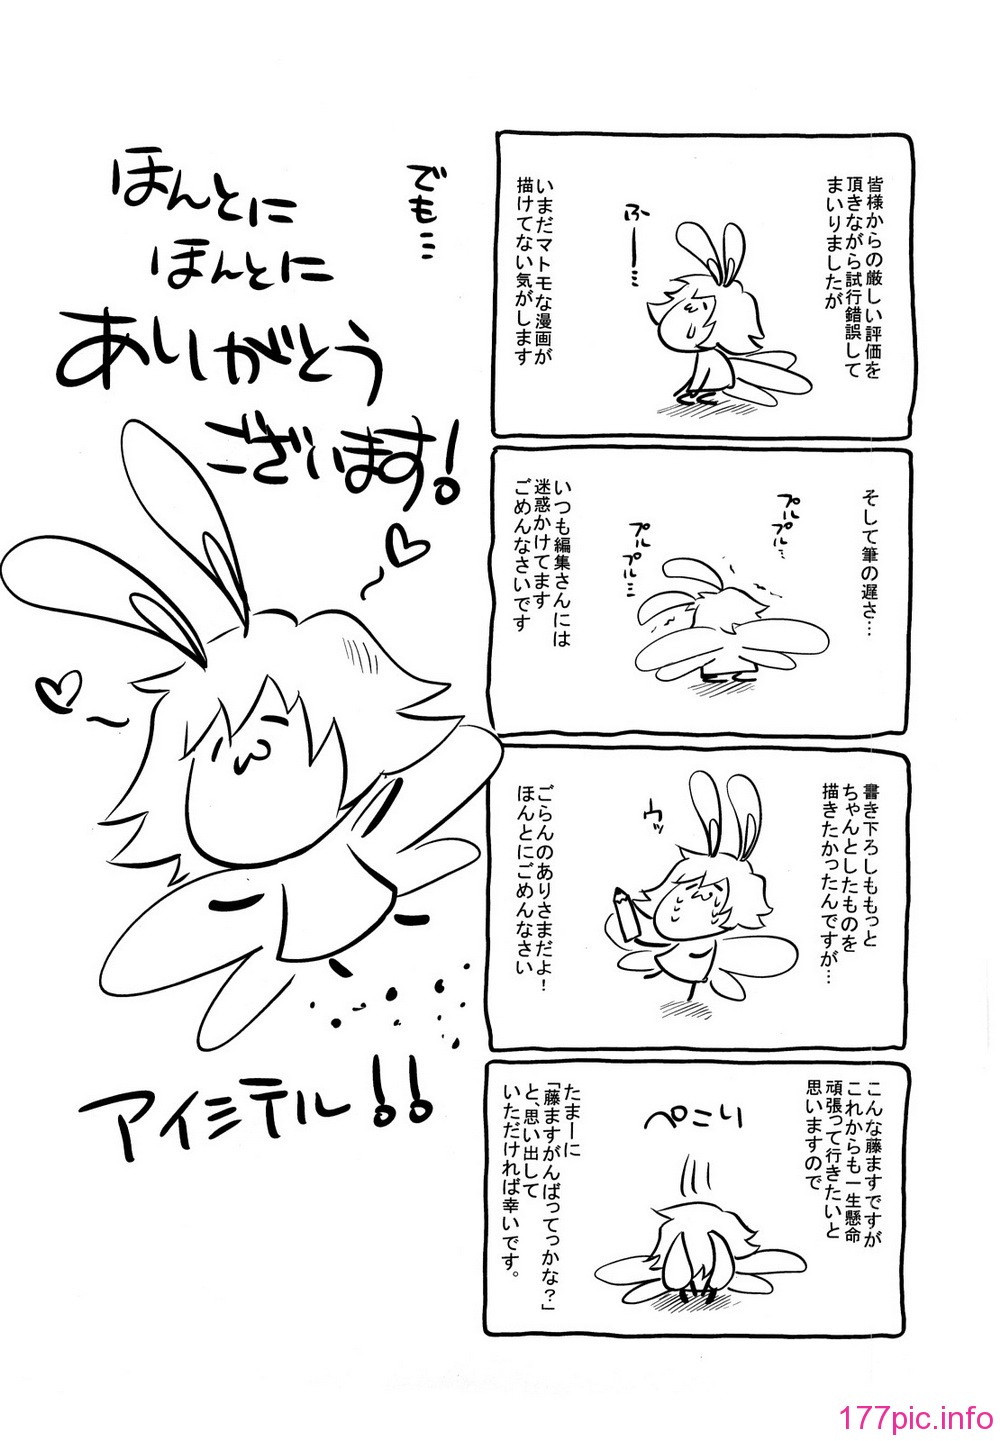 皆様からの厳しい評価を
頂きながら試行錯誤して
まいりましたが
ふーー…
いまだマトモな漫画が
描けてない気がします
そして筆の遅さ…
プルプル…
プルプル…
いつも編集さんには
迷惑かけてます
ごめんなさいです
書き下ろしももっと
ちゃんとしたものを
描きたかったんですが…
ウッ
ごらんのありさまだよ！
ほんとにごめんなさい
こんな藤ますですが
これからも一生懸命
頑張って行きたいと
思いますので
ぺこり
たまーに
「藤ますがんばってっかな？」
と、思い出して
いただければ幸いです。
でも…
ほんとに
ほんとに
ありがとう
ございます！
アイシテル！！
177pic.info